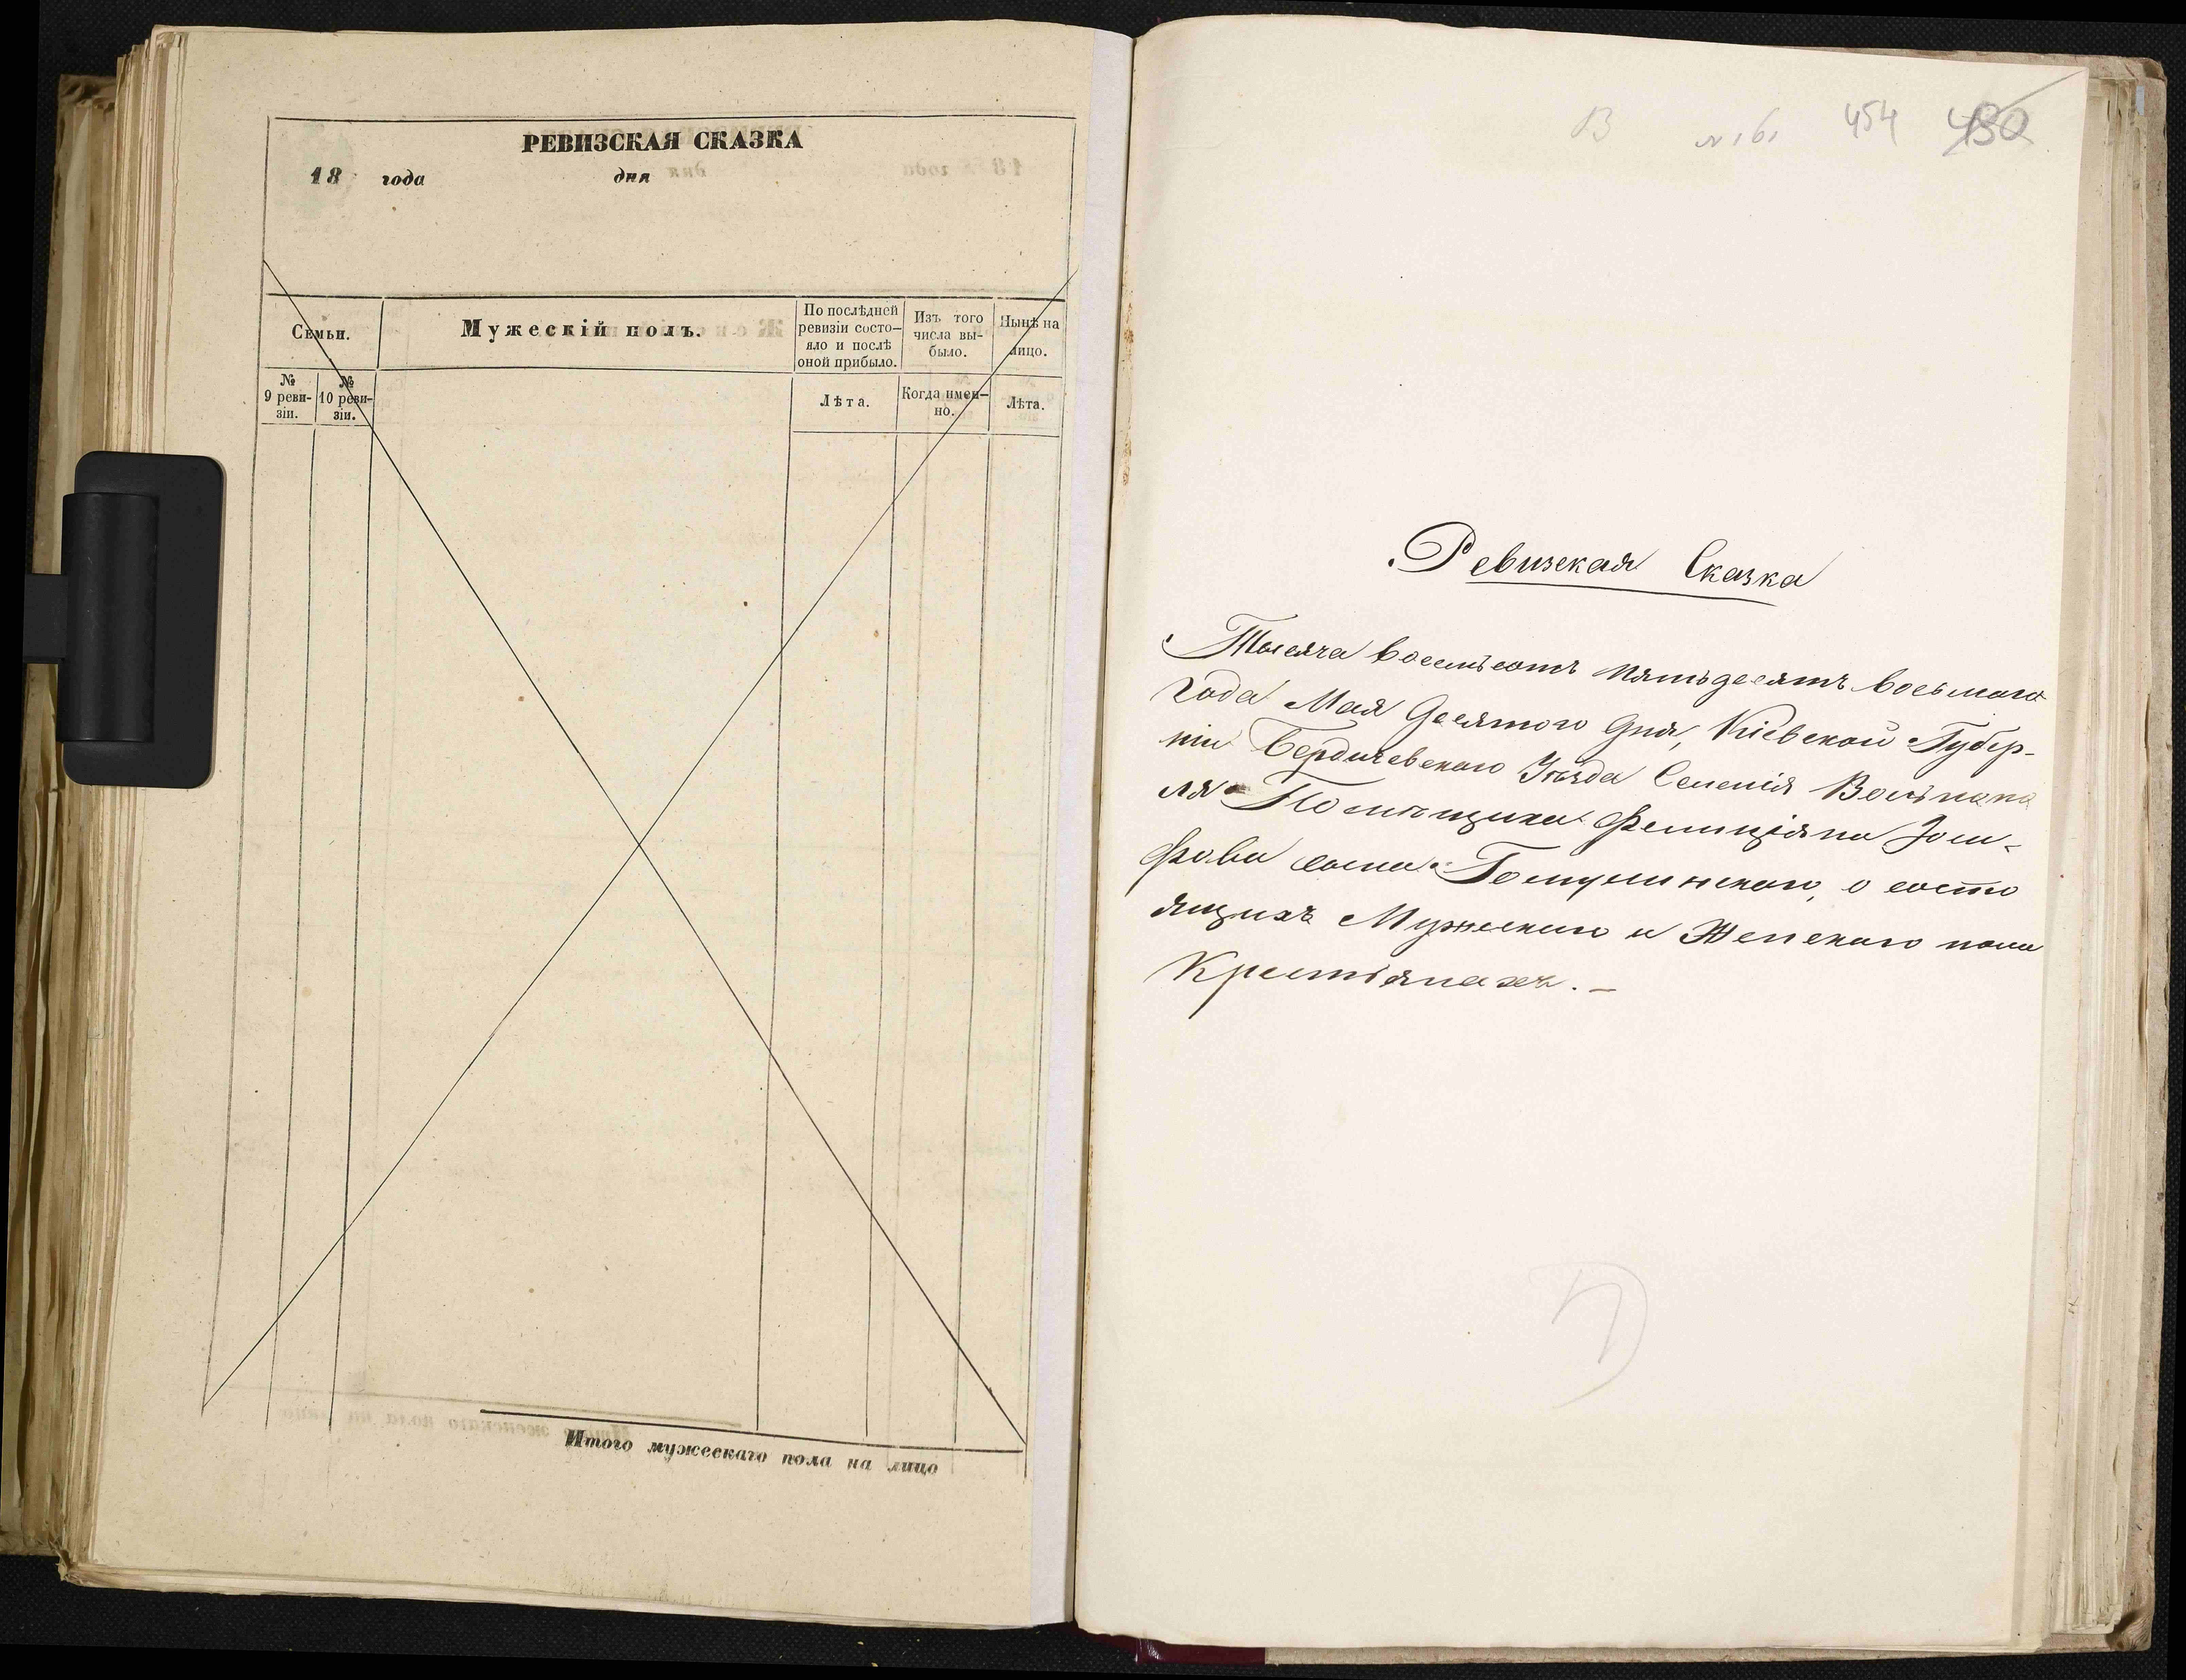 РЕВИЗСКАЯ СКАЗКА
18 года дня
Семьи.
Мужескій полъ.
По послѣдней
ревизіи состо-
яло и послѣ
оной прибыло.
Изъ того
числа вы-
было.
Нынѣ на
лицо.
№
9 реви-
зіи.
№
10 реви-
зіи.
Лѣта.
Когда имен-
но.
Лѣта.
Итого мужескаго пола на лицо
В №161 454 430
Ревизская Сказка
Тысяча восемьсотъ пятьдесятъ восьмаго
года Мая десятого дня, Кіевской Губер-
ніи Бердичевского Уѣзда Селенія
ля Помѣщика Фелиціяна Іози-
фова сына о состо
ящихъ Мужеского и Женского пола
Крестьянахъ.-